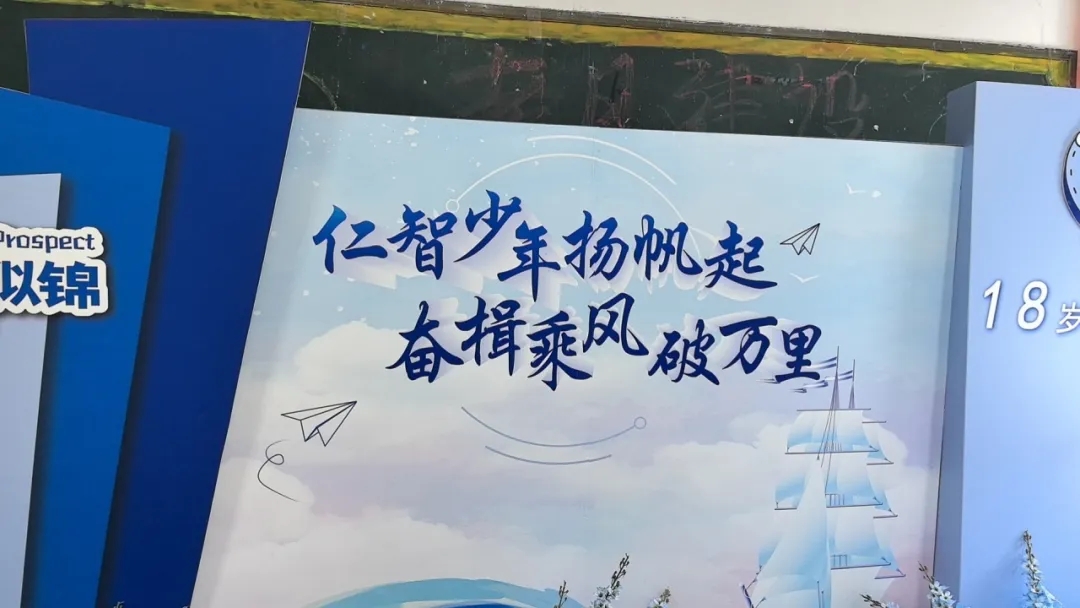 Prospect
以锦
仁智少年扬帆起
奋揖乘风破万里
18岁